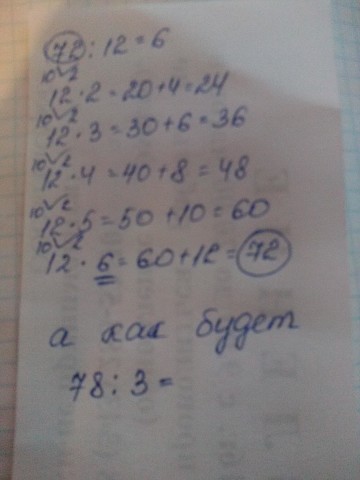 72 : 12 = 6
10 2
12 · 2 = 20 + 4 = 24
10 2
12 · 3 = 30 + 6 = 36
10 2
12 · 4 = 40 + 8 = 48
10 2
12 · 5 = 50 + 10 = 60
10 2
12 · 6 = 60 + 12 = 72
а как будет
78 : 3 =